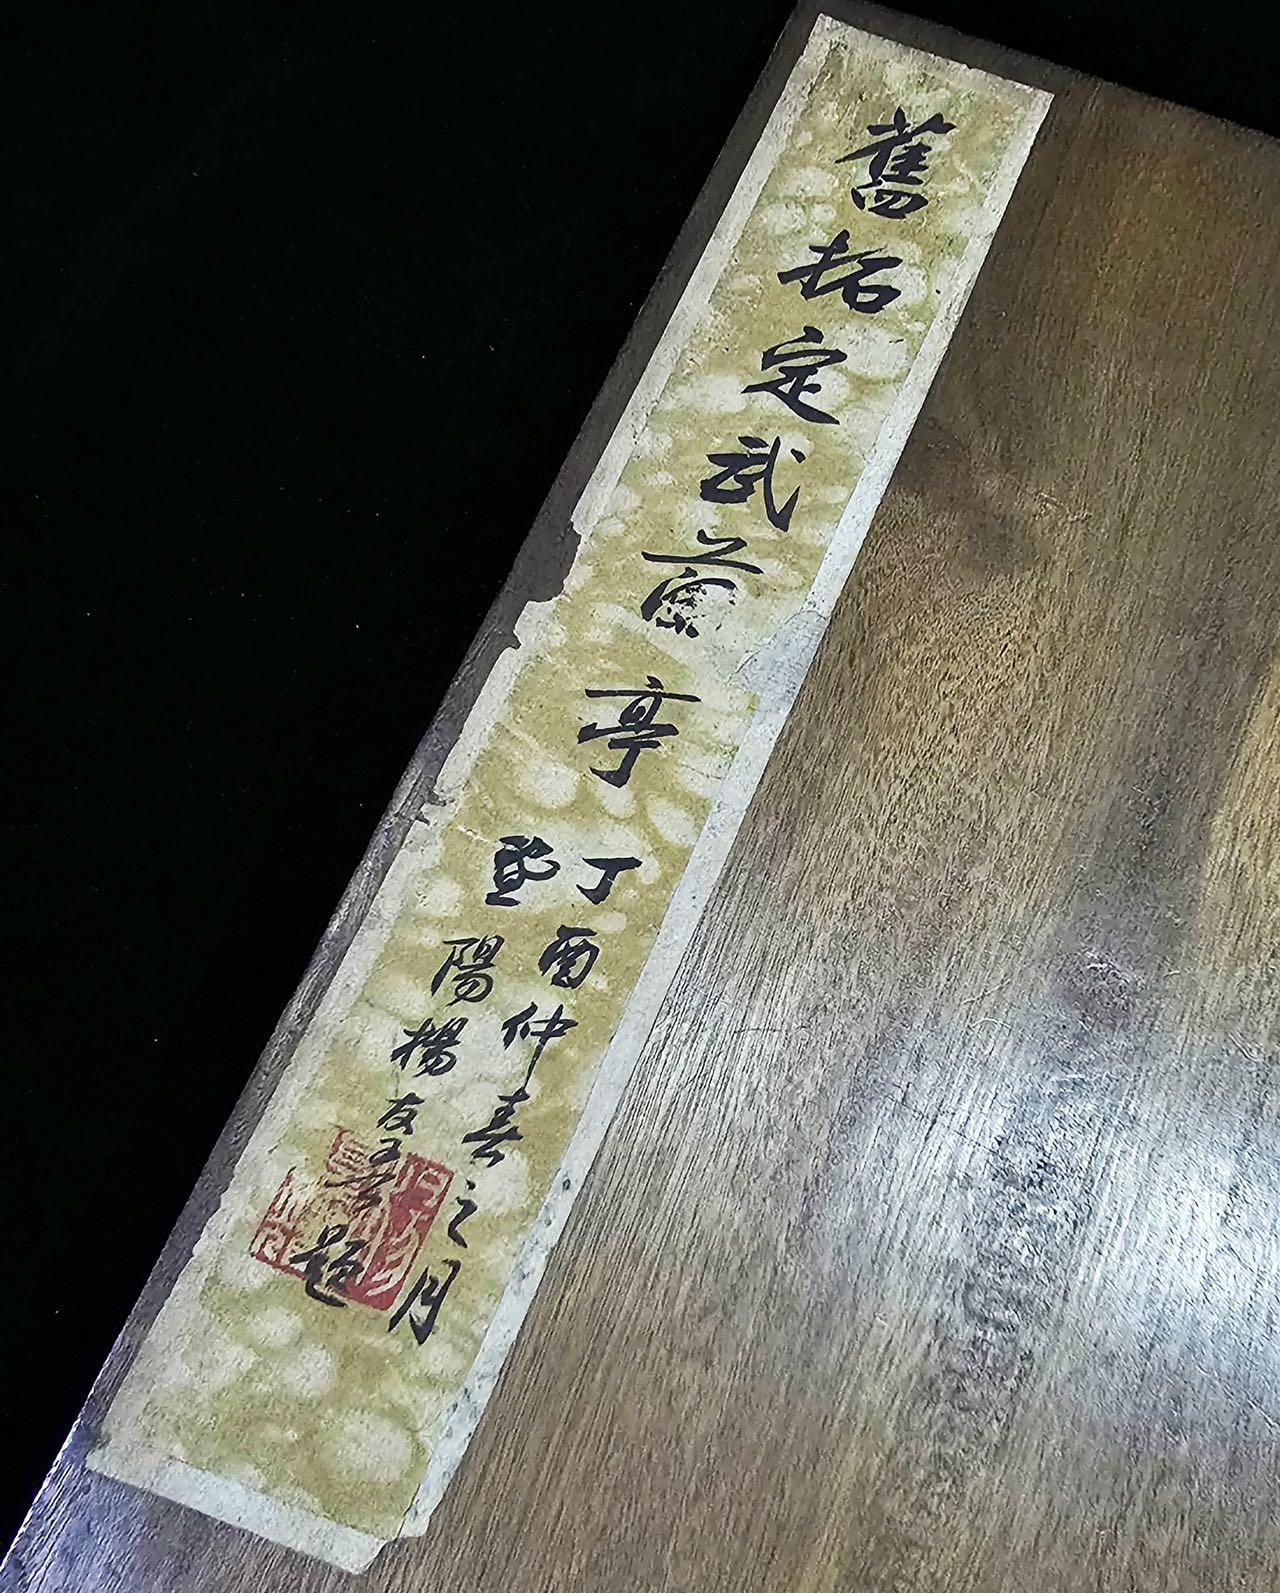 舊拓定武蘭亭
丁酉仲春之月
暨陽楊友
題